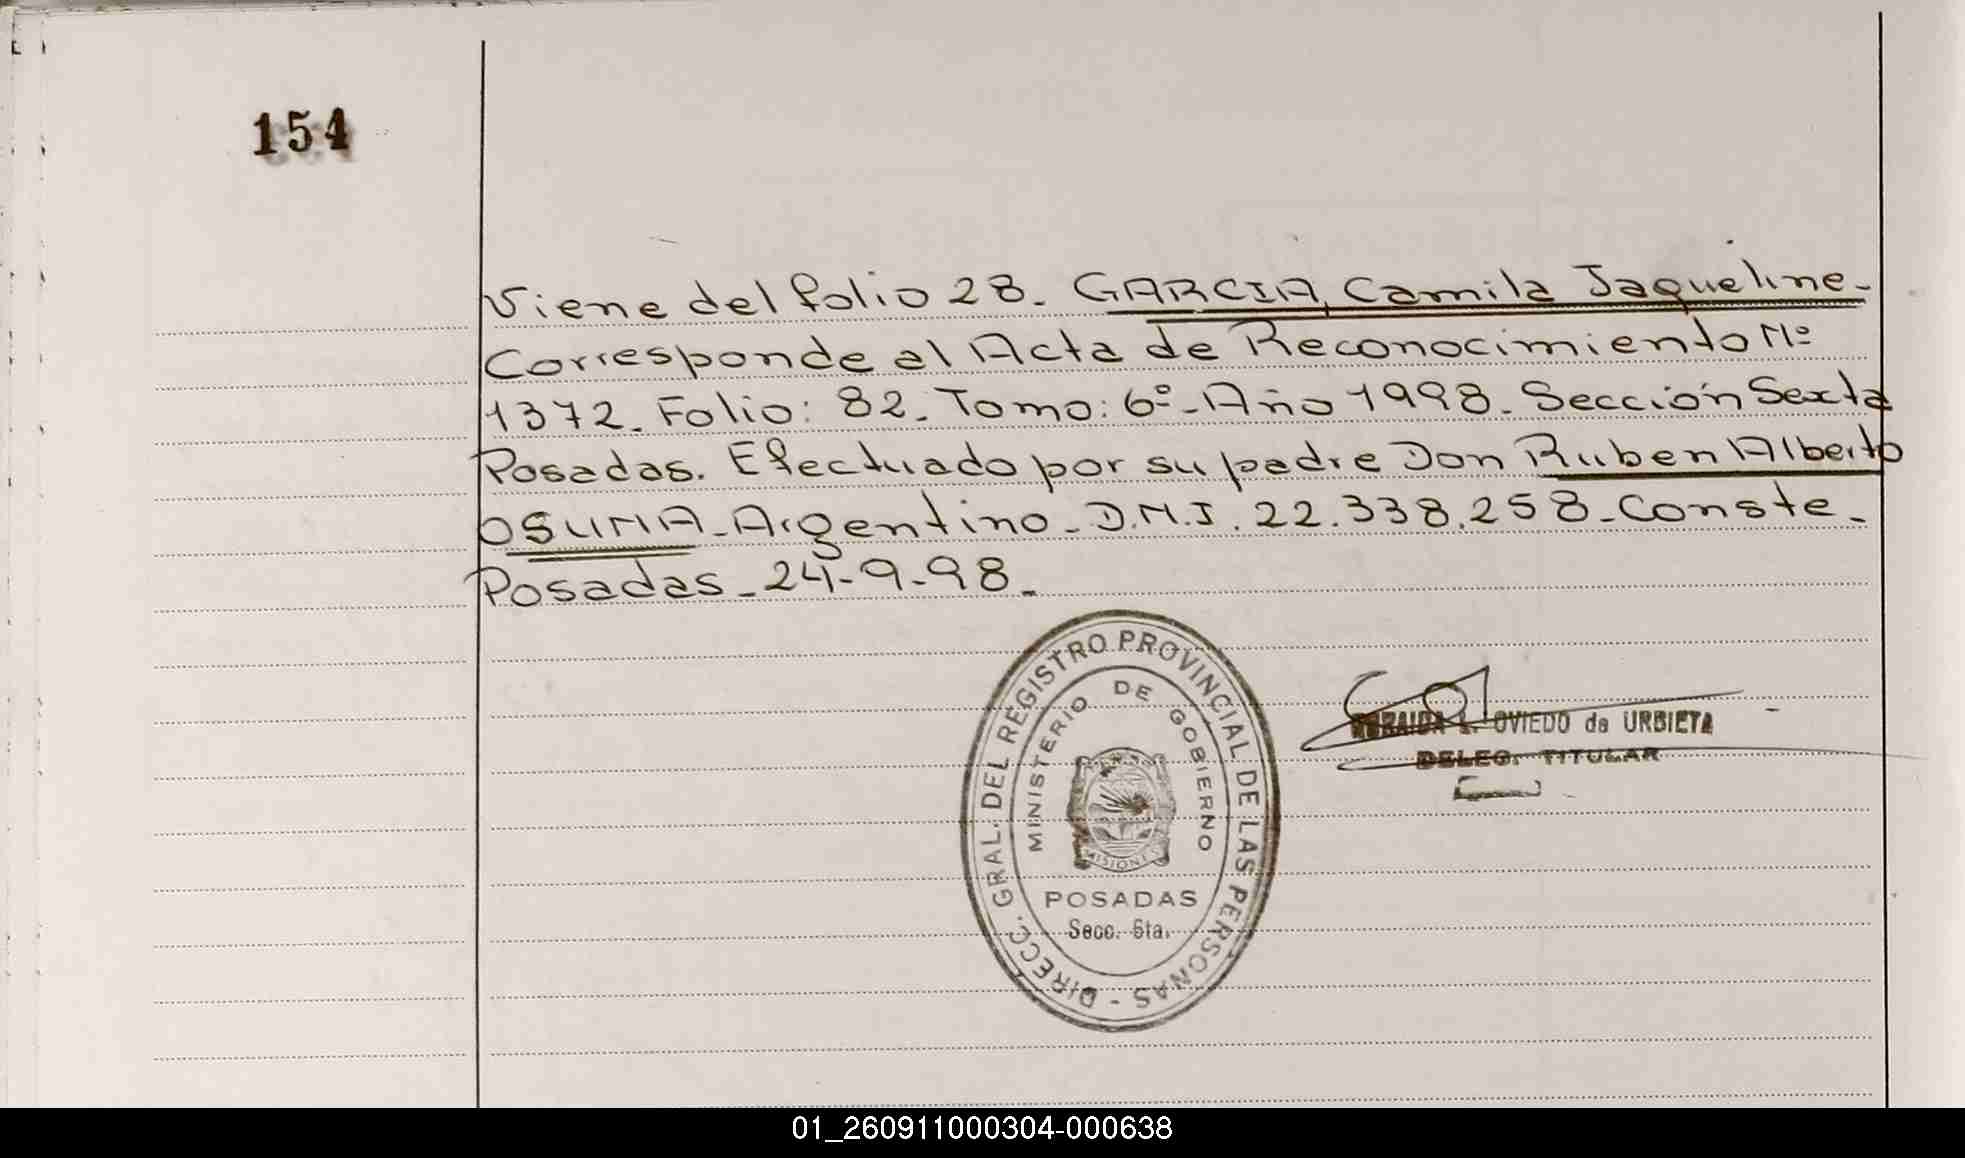 154
Viene del folio 28. GARCIA, Camila Jaqueline.
Corresponde al Acta de Reconocimiento Nº
1372. Folio: 82. Tomo: 6º. Año 1998. Sección Sexta
Posadas. Efectuado por su padre Don Ruben Alberto
OSUNA. Argentino. D.N.I. 22.338.258. Conste.
Posadas. 24-9-98.
DIRECC. GRAL. DEL REGISTRO PROVINCIAL DE LAS PERSONAS -
MINISTERIO DE GOBIERNO
MISIONES
POSADAS
Secc. 6ta.
L. OVIEDO de URBIETA
DELEG. TITULAR
01_260911000304-000638